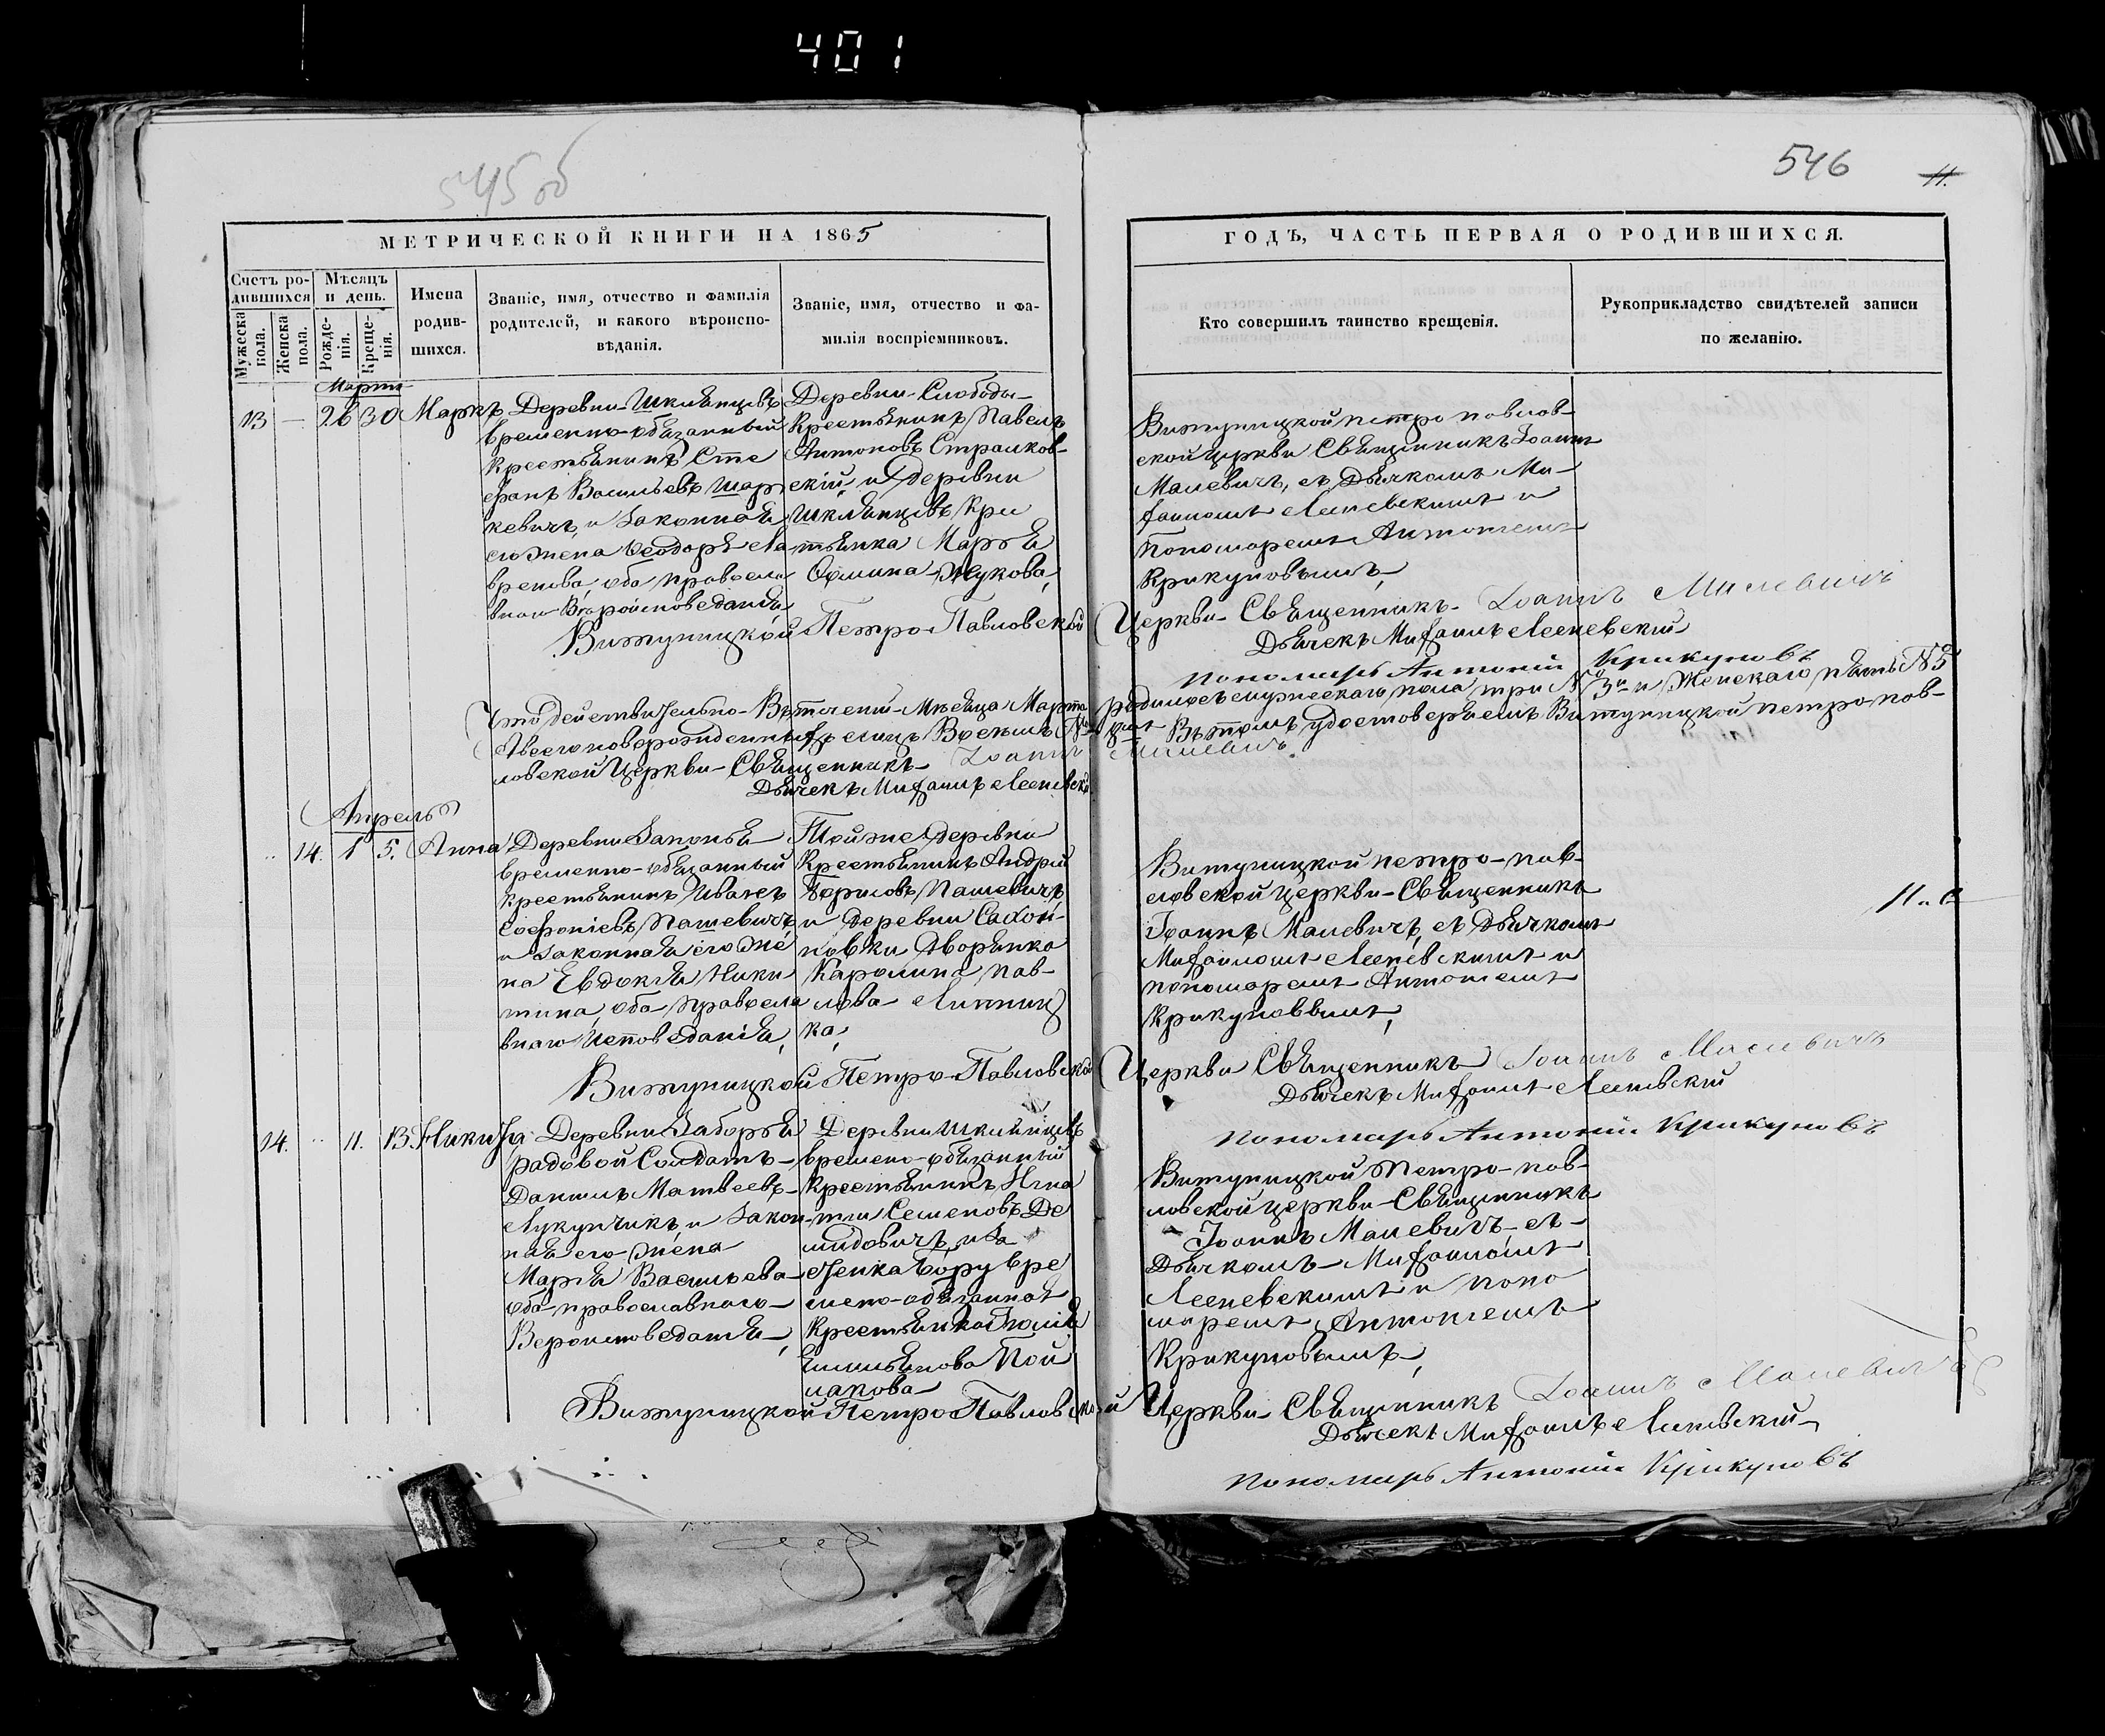 401
545 об
546
11.
МЕТРИЧЕСКОЙ КНИГИ НА 1865
ГОДЪ, ЧАСТЬ ПЕРВАЯ О РОДИВШИХСЯ.
Счетъ ро-
дившихся
Мужеска
пола.
Женска
пола.
Мѣсяцъ
и день.
Рожде-
нія.
Креще-
нія.
Имена
родив-
шихся.
Званіе, имя, отчество и фамилія
родителей, и какого вѣроиспо-
вѣданія.
Званіе, имя, отчество и фа-
милія воспріемниковъ.
Кто совершилъ таинство крещенія.
Рукоприкладство свидѣтелей записи
по желанію.
Мартъ
13 — 26 30 Маркъ
Деревни Шклянцевъ
временно-обязанный
крестьянинъ Сте
фанъ Васильевъ Шар
кевичъ, и законная
его жена Ѳеодора Ла
вренова, оба правосла
внаго Вѣроисповеданія,
Деревни Слободы
Крестьянинъ Павелъ
Антоновъ Страчков-
скій, и Деревни
Шклянцевъ Кре
стьянка Марья
Ѳомина Жукова,
Витуницкой петро павлов-
ской церкви Священникъ Іоаннъ
Малевичъ, съ Дьячкомъ Ми-
хаиломъ Лісневскимъ и
Пономаремъ Антоніемъ
Крикуновымъ,
Витуницкой Петро-Павловской Церкви Священникъ Іоаннъ Малевичъ
Дьячекъ Михаилъ Лісневскій
пономарь Антоній Крикуновъ
Что действительно Въ теченіи Мѣсяца Марта родилось мужескаго пола три №3й и Женскаго пять №5
А всего новорожденныхъ Восемь №8 Въ томъ удостоверяемъ Витуницкой петропав-
ловской Церкви Священникъ Іоаннъ Малевичъ
Дьячекъ Михаилъ Лісневскій
Апрель
14. 1 5. Анна
Деревни Запонья
временно-обязанный
крестьянинъ Иванъ
Софоніевъ Пашевичъ
и законная его же
на Евдокія Ники
тина, оба правосла
внаго исповеданія,
Той же Деревни
Крестьянинъ Андрей
Борисовъ Пашевичъ
и Деревни
Дворянка
Каролина Пав-
лова
ка,
Витуницкой петро-пав-
ловской церкви Священникъ
Іоаннъ Малевичъ, съ Дьячкомъ
Михаиломъ Лісневскимъ и
пономаремъ Антоніемъ
Крикуновымъ,
Витуницкой Петро-Павловской Церкви Священникъ Іоаннъ Малевичъ
Дьячекъ Михаилъ Лісневскій
пономарь Антоній Крикуновъ
14. 11. 13. Никита
Деревни Заборья
радовой Солдатъ
Даниилъ Матвеевъ
Лукунчикъ и закон
ная его жена
Марія Васильева
оба православнаго
Вероисповеданія,
Деревни
времено-обязанный
Крестьянинъ Игна
тій Семеновъ Де
мидовичъ, и
времено-обязанная
Крестьянка
Емильянова
Витуницкой Петро-пав-
ловской церкви Священникъ
Іоаннъ Малевичъ съ
Дьячкомъ Михаиломъ
Лісневскимъ и поно
маремъ Антоніемъ
Крикуновымъ,
Витуницкой Петро Павловской Церкви Священникъ Іоаннъ Малевичъ
Дьячекъ Михаилъ Лісневскій
пономарь Антоній Крикуновъ